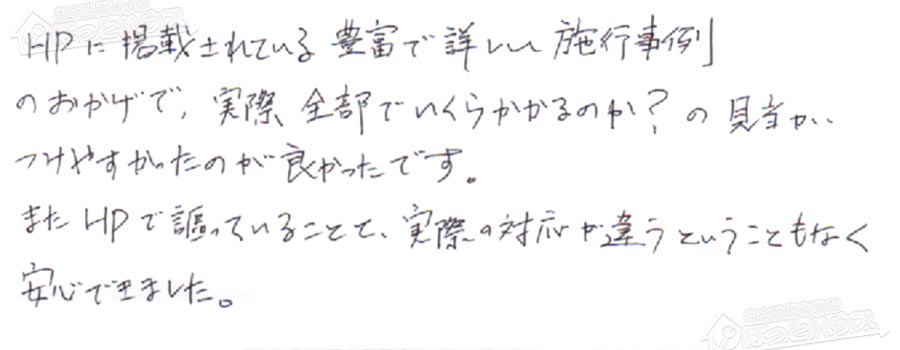 HPに掲載されている豊富で詳しい施行事例
のおかげで、実際全部でいくらかかるのか？の見当が
つけやすかったのが良かったです。
またHPで謳っていることと、実際の対応が違うということもなく
安心できました。
ほっとハウス